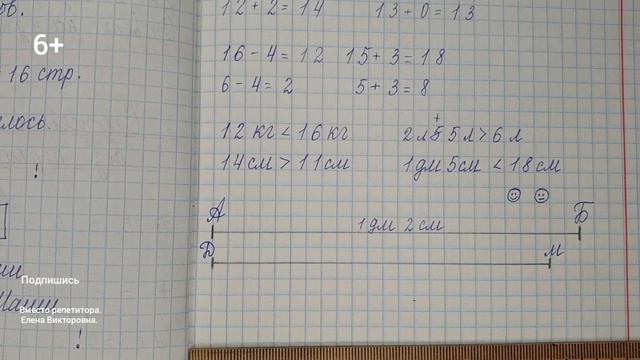 5б.
12 + 2 = 14 13 + 0 = 13
6+
16 - 4 = 12 15 + 3 = 18
16 стр.
6 - 4 = 2 5 + 3 = 8
лось.
12 кг < 16 кг 2 л + 5 л > 6 л
!
14 см > 11 см 1 дм 5 см < 18 см
А Б
1 дм 2 см
Д М
Подпишись
Вместо репетитора.
Елена Викторовна.
!